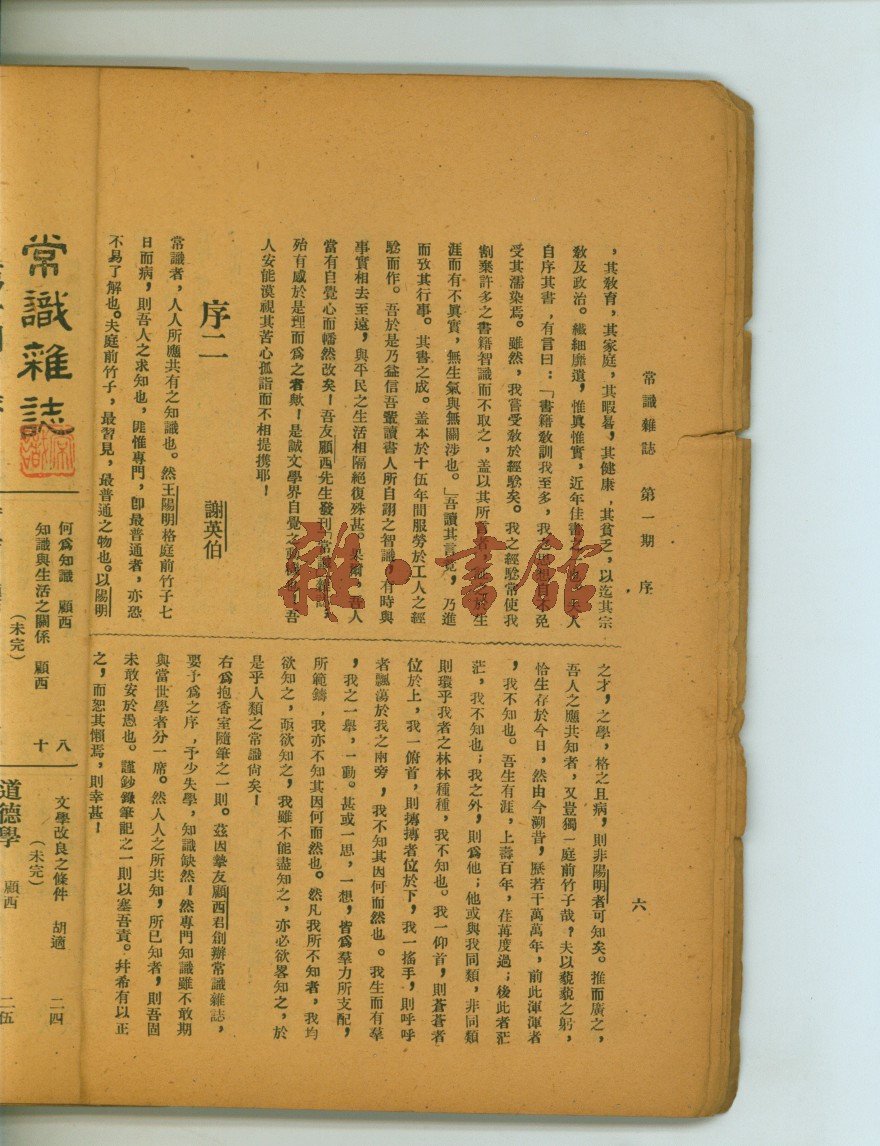 常識雜誌 第一期 序
六
，其教育，其家庭，其暇晷，其健康，其貧乏，以迄其宗
教及政治。纖細靡遺，惟眞惟實，近年佳書之一也。夫人
自序其書，有言曰：「書籍敎訓我至多，我之思想自不免
受其濡染焉。雖然，我嘗受敎於經驗矣。我之經驗常使我
割棄許多之書籍智識而不取之，蓋以其所言者，
涯而有不眞實，無生氣與無關涉也。」吾讀其言竟，乃進
而攷其行事。其書之成。蓋本於十五年間服勞於工人之經
驗而作。吾於是乃益信吾輩讀書人所自詡之智識，有時與
事實相去至遠，與平民之生活相隔絕復殊甚。果爾，吾人
當有自覺心而幡然改矣！吾友顧西先生發刊「常識雜誌」
殆有感於是理而爲之者歟！是誠文學界自覺之動機也！吾
人安能漠視其苦心孤詣而不相提携耶！
序二
謝英伯
常識者，人人所應共有之知識也。然王陽明格庭前竹子七
日而病，則吾人之求知也，匪惟專門，卽最普通者，亦恐
不易了解也。夫庭前竹子，最習見，最普通之物也。以陽明
之才，之學，格之且病，則非陽明者可知矣。推而廣之，
吾人之應共知者，又豈獨一庭前竹子哉？夫以藐藐之躬，
恰生存於今日，然由今溯昔，歷若干萬萬年，前此渾渾者
，我不知也。吾生有涯，上壽百年，荏苒度過；後此者茫
茫，我不知也；我之外，則爲他；他或與我同類，非同類
則環乎我者之林林種種，我不知也。我一仰首，則蒼蒼者
位於上，我一俯首，則摶摶者位於下，我一搖手，則呼呼
者飄蕩於我之兩旁，我不知其因何而然也。我生而有羣
，我之一舉，一動。甚或一思，一想，皆爲羣力所支配，
所範鑄，我亦不知其因何而然也。然凡我所不知者，我均
欲知之，亟欲知之，我雖不能盡知之，亦必欲畧知之，於
是乎人類之常識尙矣！
右爲抱香室隨筆之一則。茲因摯友顧西君創辦常識雜誌，
要予爲之序，予少失學，知識缺然！然專門知識雖不敢期
與當世學者分一席。然人人之所共知，所已知者，則吾固
未敢安於愚也。謹鈔錄筆記之一則以塞吾責。幷希有以正
之，而恕其懶焉，則幸甚！
常識雜誌
何爲知識 顧西 八
知識與生活之關係 顧西 十
（未完）
文學改良之條件 胡適 二四
（未完）
道德學 顧西 二五
雜·書館